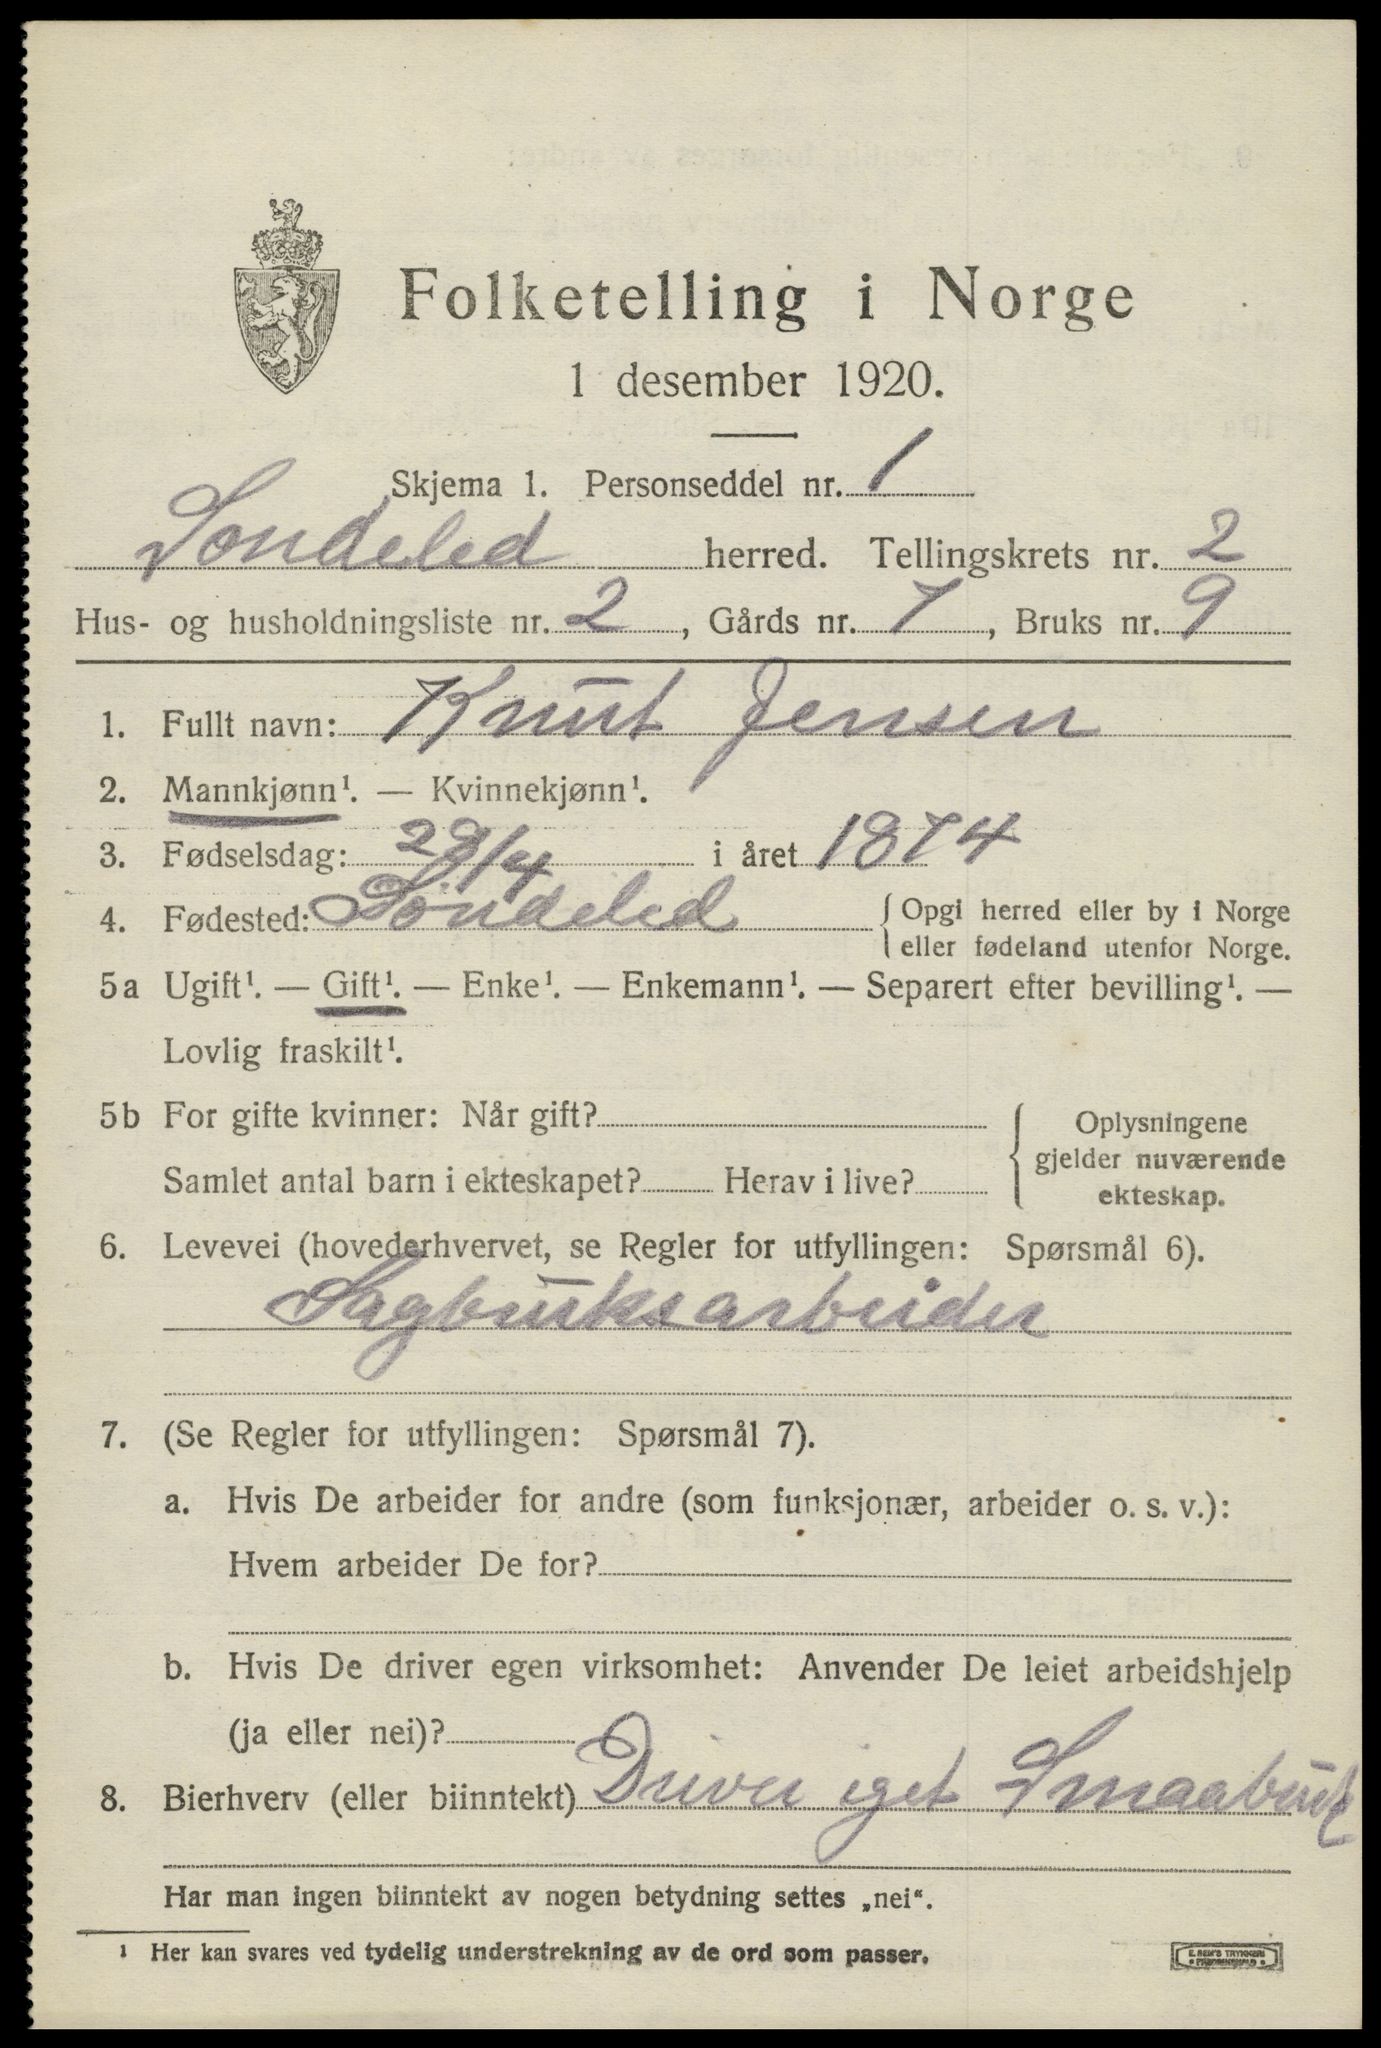 Folketelling i Norge
1 desember 1920.
Skjema 1. Personseddel nr. 1
Søndeled herred. Tellingskrets nr. 2
Hus- og husholdningsliste nr. 2, Gårds nr. 7, Bruks nr. 9
1. Fullt navn: Knut Jensen
2. Mannkjønn¹. — Kvinnekjønn¹.
3. Fødselsdag: 28/4 i året 1874
4. Fødested: Søndeled { Opgi herred eller by i Norge
eller fødeland utenfor Norge.
5a Ugift¹. — Gift¹. — Enke¹. — Enkemann¹. — Separert efter bevilling¹. —
Lovlig fraskilt¹.
5b For gifte kvinner: Når gift?
Samlet antal barn i ekteskapet? Herav i live?
{ Oplysningene
gjelder nuværende
ekteskap.
6. Levevei (hovederhvervet, se Regler for utfyllingen: Spørsmål 6).
Sagbruksarbeider
7. (Se Regler for utfyllingen: Spørsmål 7).
a. Hvis De arbeider for andre (som funksjonær, arbeider o. s. v.):
Hvem arbeider De for?
b. Hvis De driver egen virksomhet: Anvender De leiet arbeidshjelp
(ja eller nei)?
8. Bierhverv (eller biinntekt) Driver iget Smaabruk
Har man ingen biinntekt av nogen betydning settes „nei“.
¹ Her kan svares ved tydelig understrekning av de ord som passer.
E. SEM'S TRYKKERI
FREDRIKSHALD